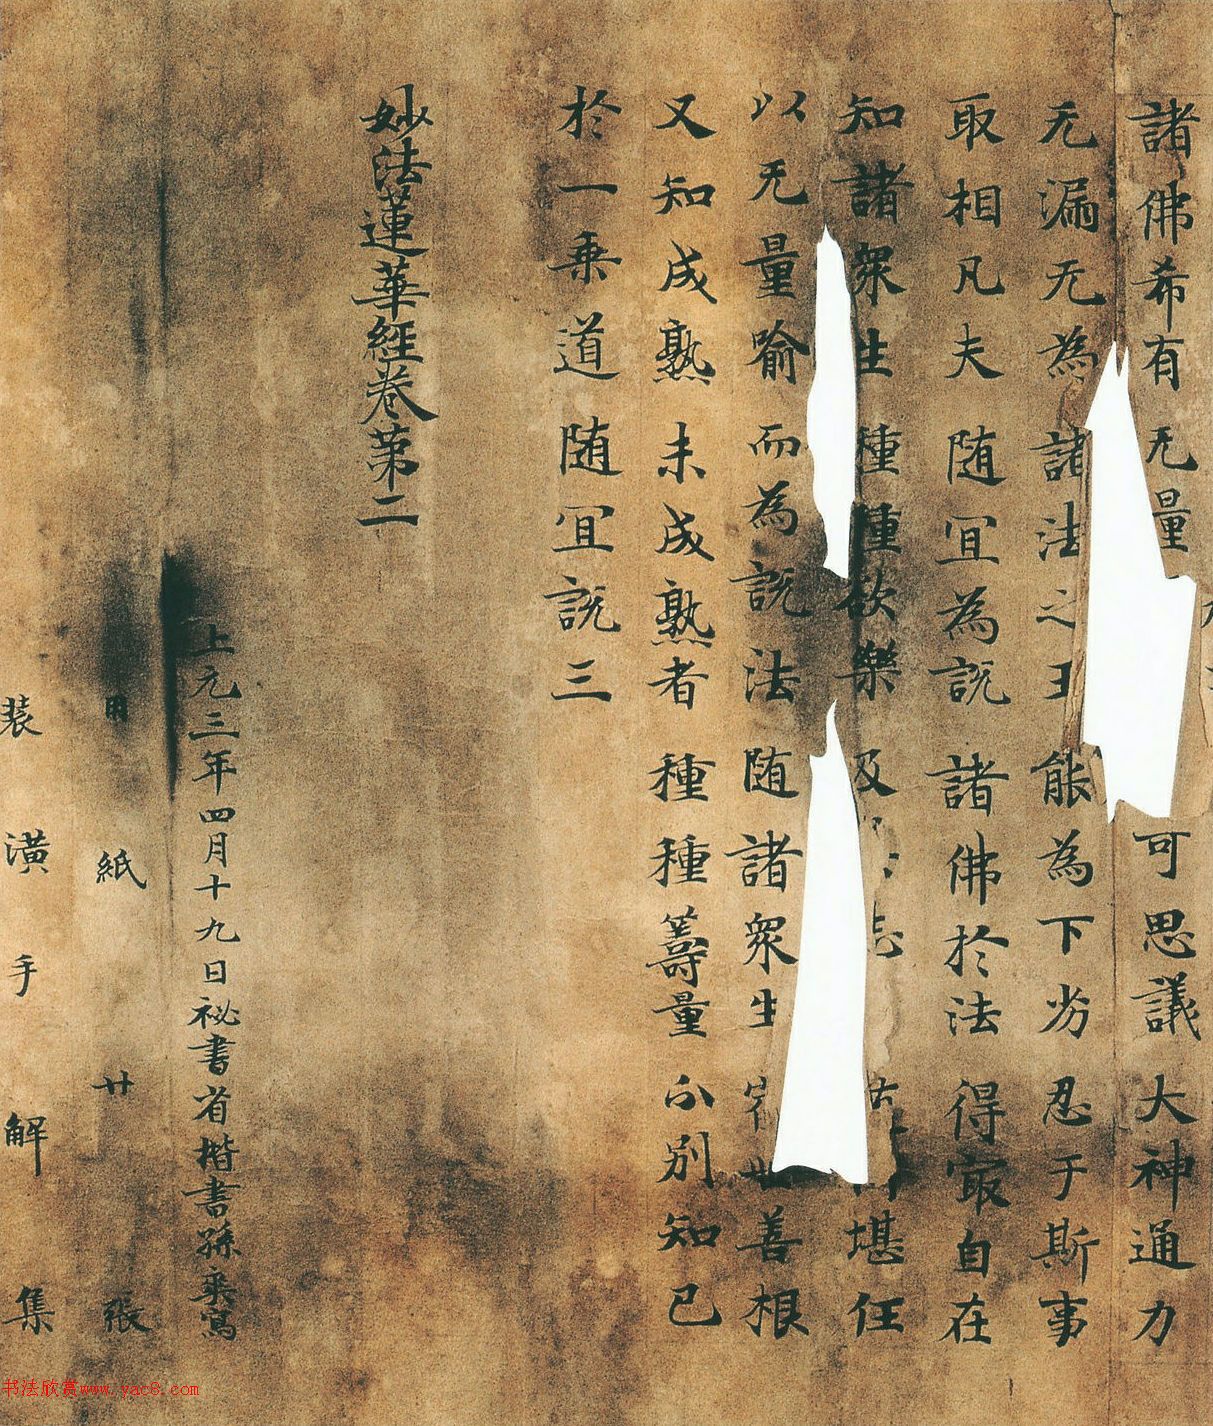 諸佛希有 无量 可思議 大神通力
无漏无為 諸法之王 能為下劣 忍于斯事
取相凡夫 随冝為說 諸佛於法 得㝡自在
知諸眾生 種種欲樂 及 志 堪任
以无量喻 而為說法 随諸眾生 宿世善根
又知成熟 未成熟者 種種籌量 分別知已
於一乗道 随冝說三
妙法蓮華經卷第二
上元三年四月十九日祕書省楷書孫玄爽寫
用紙廿張
裝潢手解集
书法欣赏www.yac8.com